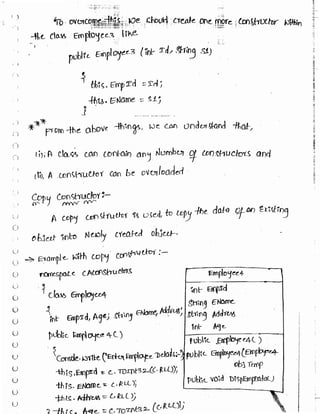 To overcome this, we should create one more constructor within
the class Employee3 like
public Employee3 (int Id, string s1)
{
this.EmpId = Id;
this.EName = s1;
}
*** From the above things, we can understand that,
(i) A class can contain any Number of constructors and
(ii) A constructor can be overloaded
Copy Constructor :-
A copy constructor is used to copy the data of an Existing
object into Newly created object.
→ Example with copy constructor :-
namespace CAConstructors
{
class Employee4
{
int EmpId, Age; string EName, Address;
public Employee4 ( )
{
Console.Write ("Enter Employee Details:-");
this.EmpId = C.ToInt32(C.RL());
this.EName = C.RL();
this.Address = C.RL();
this.Age = C.ToInt32 (C.RL());
Employee4
int EmpId
string EName
string Address
int Age
Public Employee4( )
public Employee4(Employee4
obj Temp
public void DispEmpData( )